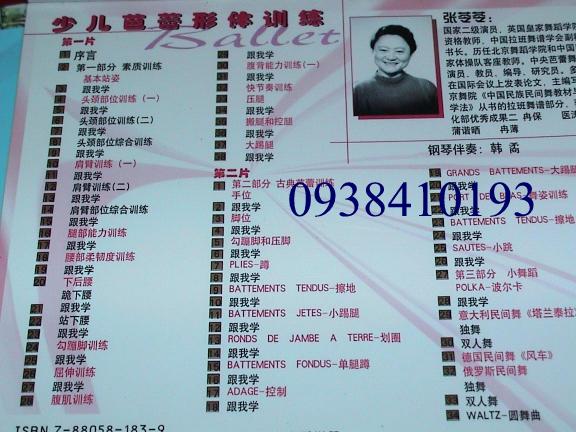 少儿芭蕾形体训练
Ballet
第一片
1 序言
2 第一部分 素质训练
基本站姿
3 跟我学
4 头颈部位训练（一）
5 跟我学
6 头颈部位训练(二)
7 跟我学
8 头颈部位综合训练
9 跟我学
10 肩臂训练(一)
11 跟我学
12 肩臂训练(二)
13 跟我学
14 肩臂部位综合训练
15 跟我学
16 腿部能力训练
17 跟我学
18 腰部柔韧度训练
19 跟我学
20 下后腰
跪下腰
21 跟我学
22 站下腰
23 跟我学
24 勾蹦脚训练
25 跟我学
26 屈伸训练
27 跟我学
28 腹肌训练
ISBN 7-88058-183-9
跟我学
腹背能力训练(一)
跟我学
快节奏训练
跟我学
压腿
跟我学
搬腿和控腿
跟我学
大踢腿
跟我学
第二片
1 第二部分 古典芭蕾训练
手位
2 跟我学
3 脚位
4 跟我学
5 勾蹦脚和压脚
6 跟我学
7 PLIES-蹲
8 跟我学
9 BATTEMENTS TENDUS-擦地
10 跟我学
11 BATTEMENTS JETES-小踢腿
12 跟我学
13 RONDS DE JAMBE A TERRE-划圈
14 跟我学
15 BATTEMENTS FONDUS-单腿蹲
16 跟我学
17 ADAGE-控制
18 跟我学
张苓苓:
国家二级演员，英国皇家舞蹈学
资格教师，中国拉班舞谱学会副秘
书长。历任北京舞蹈学院和中国
家体操队客座教师。中央芭蕾舞
演员、教员、编导、研究员。多
在国际会议上发表论文，主编
京舞院《中国民族民间舞教材与
学法》丛书的拉班舞谱部分，
化部优秀成果二
蒲谐晒 冉薄
钢琴伴奏: 韩
19 GRANDS BATTEMENTS-大踢腿
20 跟我学
21 PORT DE BRAS-舞姿训练
22 跟我学
23 BATTEMENTS TENDUS-擦地
24 跟我学
25 SAUTES-小跳
26 跟我学
27 第三部分 小舞蹈
POLKA-波尔卡
28 跟我学
29 意大利民间舞《塔兰泰拉》
独舞
30 双人舞
31 德国民间舞《风车》
32 俄罗斯民间舞
独舞
33 双人舞
34 WALTZ-圆舞曲
0938410193